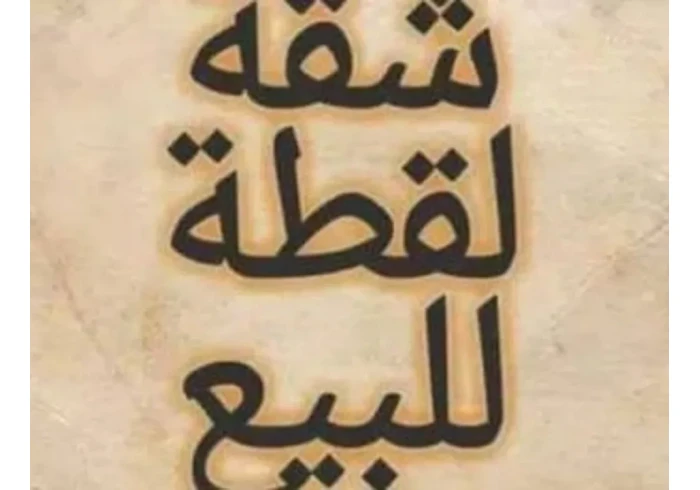 شقة
لقطة
للبيع